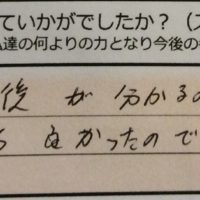 ていかがでしたか？（ス
達の何よりの力となり今後の
後が分かるの
良かったので